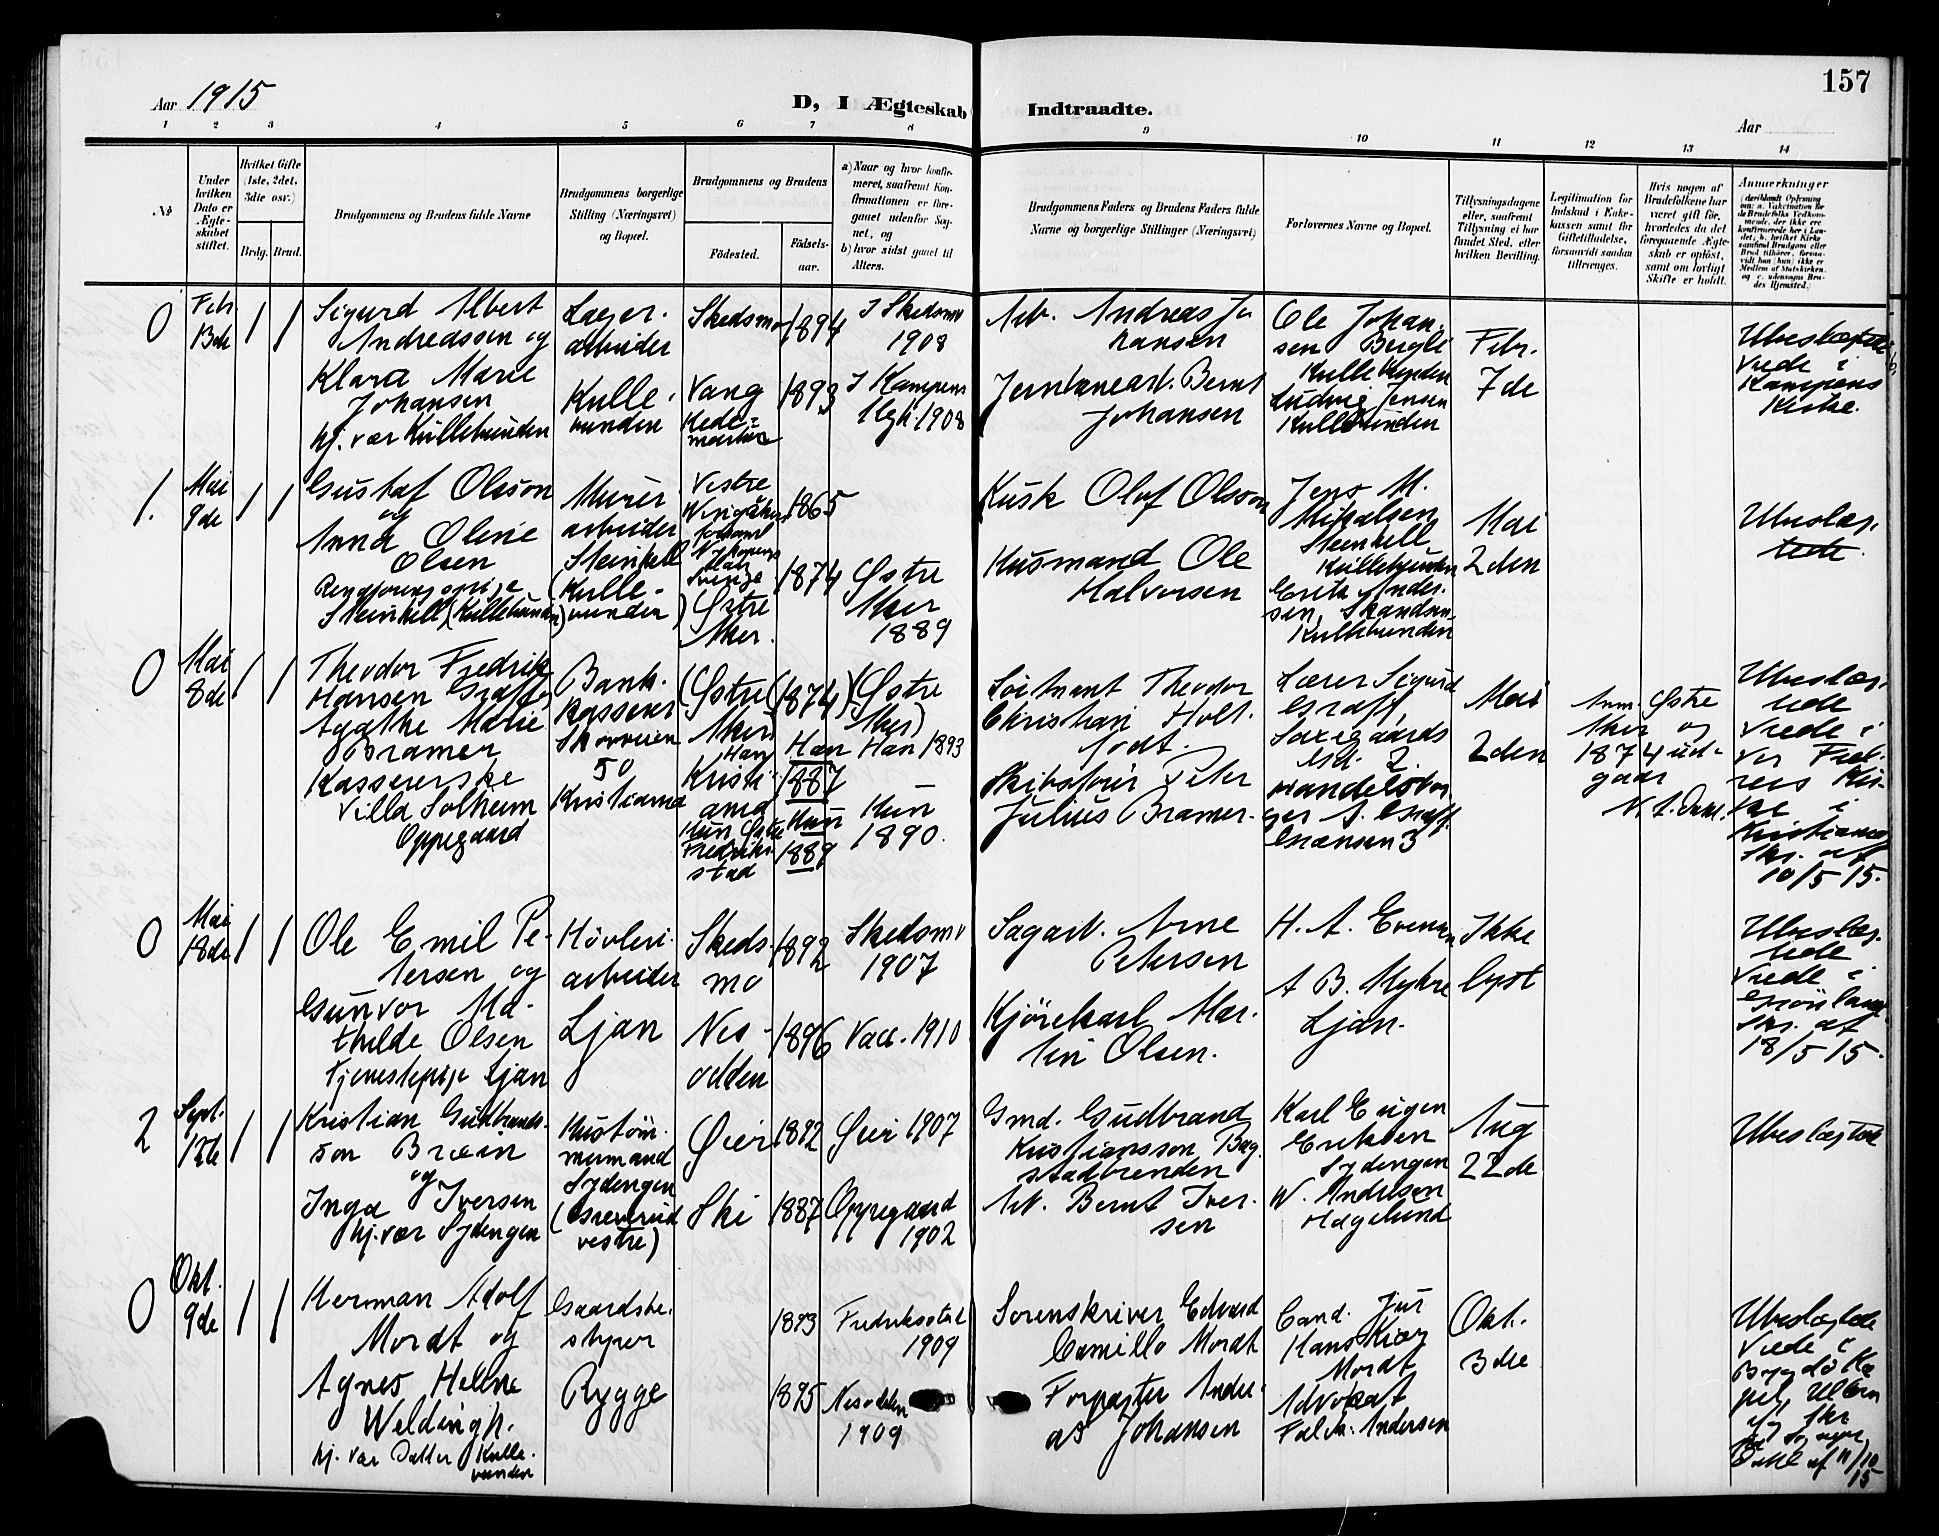 157
Aar 1915
D, I Ægteskab Indtraadte.
Aar
1 2 3 4 5 6 7 8 9 10 11 12 13 14
No
Under
hvilken
Dato er
Ægte-
skabet
stiftet.
Hvilket Gifte
(1ste, 2det,
3die osv.)
Brdg. Brud.
Brudgommens og Brudens fulde Navne
Brudgommens borgerlige
Stilling (Næringsvei)
og Bopæl.
Brudgommens og Brudens
Fødested.
Fødsels-
aar.
a) Naar og hvor konfir-
meret, saafremt Kon-
firmationen er fore-
gaaet udenfor Sog-
net, og
b) hvor sidst gaaet til
Alters.
Brudgommens Faders og Brudens Faders fulde
Navne og borgerlige Stillinger (Næringsvei)
Forlovernes Navne og Bopæl.
Tillysningsdagene
eller, saafremt
Tillysning ei har
fundet Sted, efter
hvilken Bevilling.
Legitimation for
Indskud i Enke-
kassen samt for
Giftetilladelse,
forsaavidt saadan
tiltrænges.
Hvis nogen af
Brudefolkene har
været gift før,
hvorledes da det
foregaaende Ægte-
skab er opløst,
samt om lovligt
Skifte er holdt.
Anmærkninger
(deriblandt Oplysning
om: a. Vaccination for
de Brudefolks Vedkom-
mende, der ikke ere
konfirmerede her i Lan-
det; b. hvilket Kirke-
samfund Brudgom eller
Brud tilhører, forsaa-
vidt han (hun) ikke er
Medlem af Statskirken,
og c. udensogns Bru-
des Hjemsted.)
0
Febr
13de
1 1
Sigurd Albert
Andreassen og
Klara Marie
Johansen
hj. vær Kullebunden
Lager.
arbeider
Kulle.
bunden
Skedsmo
Vang
Hede-
marken
1894
1893
I Skedsmo
1908
I Kampens
Kgk. 1908
Arb. Andreas Jo
hansen
Jernbanearb. Bernt
Johansen
Ole Johan.
sen Bergli
Kullebunden
Ludvig Jensen
Kullebunden
Febr.
7de
Ubeslægtede
Viede i
Kampens
Kirke.
1.
Mai
9de
1 1
Gustaf Olsson
og
Anna Oline
Olsen
Rengjøringspige
Steinkell (Kullebunden)
Murer
arbeider
Steinkell
(Kulle-
bunden)
Vestre
Sverige
Østre
Aker.
1865
1874
Østre
Aker
1889
Kusk Olof Olsson
Husmand Ole
Halvorsen
Jens M.
Mikalsen
Steinkell
Kullebunden
Erik Ander.
sen,
Kullebunden
Mai
2den
Ubeslæg.
tede.
0
Mai
8de
1 1
Theodor Fredrik
Hansen Graff og
Agathe Marie
Bramer
Kassererske
Villa Solheim
Oppegaard
Bank.
kasserer
Skovveien
50
Kristiania
(Østre
Aker)
Han
Kristi-
ania
Hun
Fredrik-
stad
(1874)
Han
1887
Hun
1889
(Østre
Aker)
Han 1893
Hun
1890.
Løitnant Theodor
Christian Holt.
fodt.
Skibsfører Peter
Julius Bramer.
Lærer Sigurd
Graff,
Saxegaards
Gd. 2.
Handelsbor
ger A. Graff.
Grænsen 3
Mai
2den
Anm. Østre
Aker og
1874 ud-
gaar
Ubeslæg-
tede
Viede i
Vor Frel-
sers Kir-
ke i
Kristiania
Skr. af
10/5 15.
0
Mai
18de
1 1
Ole Emil Pe-
tersen og
Gunvor Ma-
thilde Olsen
Tjenestepige Ljan
Høvleri.
arbeider
Ljan
Skeds-
mo
Nes-
odden
1892
1896
Skedsmo
1907
Vacc. 1910
Sagarb. Arne
Petersen
Kjørekarl Mar-
tin Olsen.
H. A. Evensen
A B. Myhre
Ljan.
Ikke
lyst
Ubeslæg.
tede
Viede i
Skr. af
18/5 15.
2
Sept.
12te
1 1
Kristian Gudbrands-
son Bræin
og
Inga Iversen
hj. vær Sydengen
Hustøm.
mermand
Sydengen
(Greverud
vestre)
Øier
Ski
1892
1887
Øier 1907
Oppegaard
1902
Gmd. Gudbrand
Kristiansson Bag
stadbrenden
Arb. Bernt Iver-
sen
Karl Eugen
Eriksen
Sydengen
W. Andersen
Haglund
Aug
22de
Ubeslægtede
0
Okt.
9de
1 1
Herman Adolf
Mordt og
Agnes Helene
Weldingh.
hj. vær Datter Kulle-
bunden
Gaardsbe-
styrer
Rygge
1893
1895
Fredriksstad
1909
Nesodden
1909
Sorenskriver Edvard
Camillo Mordt
Forpagter Andre-
as Johansen
Cand. Jur
Hans Kiær
Mordt
Advokat
Falck. Andersen
Okt.
3die
Ubeslægtede
Viede i
Bygdø Ka
pel, Ullern
Skr
af 11/10
15